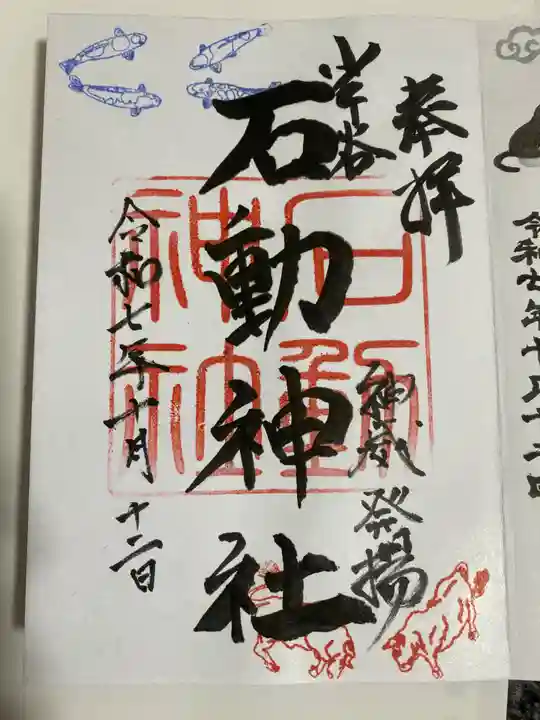 奉拝
半谷
神威発揚
石動神社
石動神社
令和七年十月十二日
令和七年十月十二日